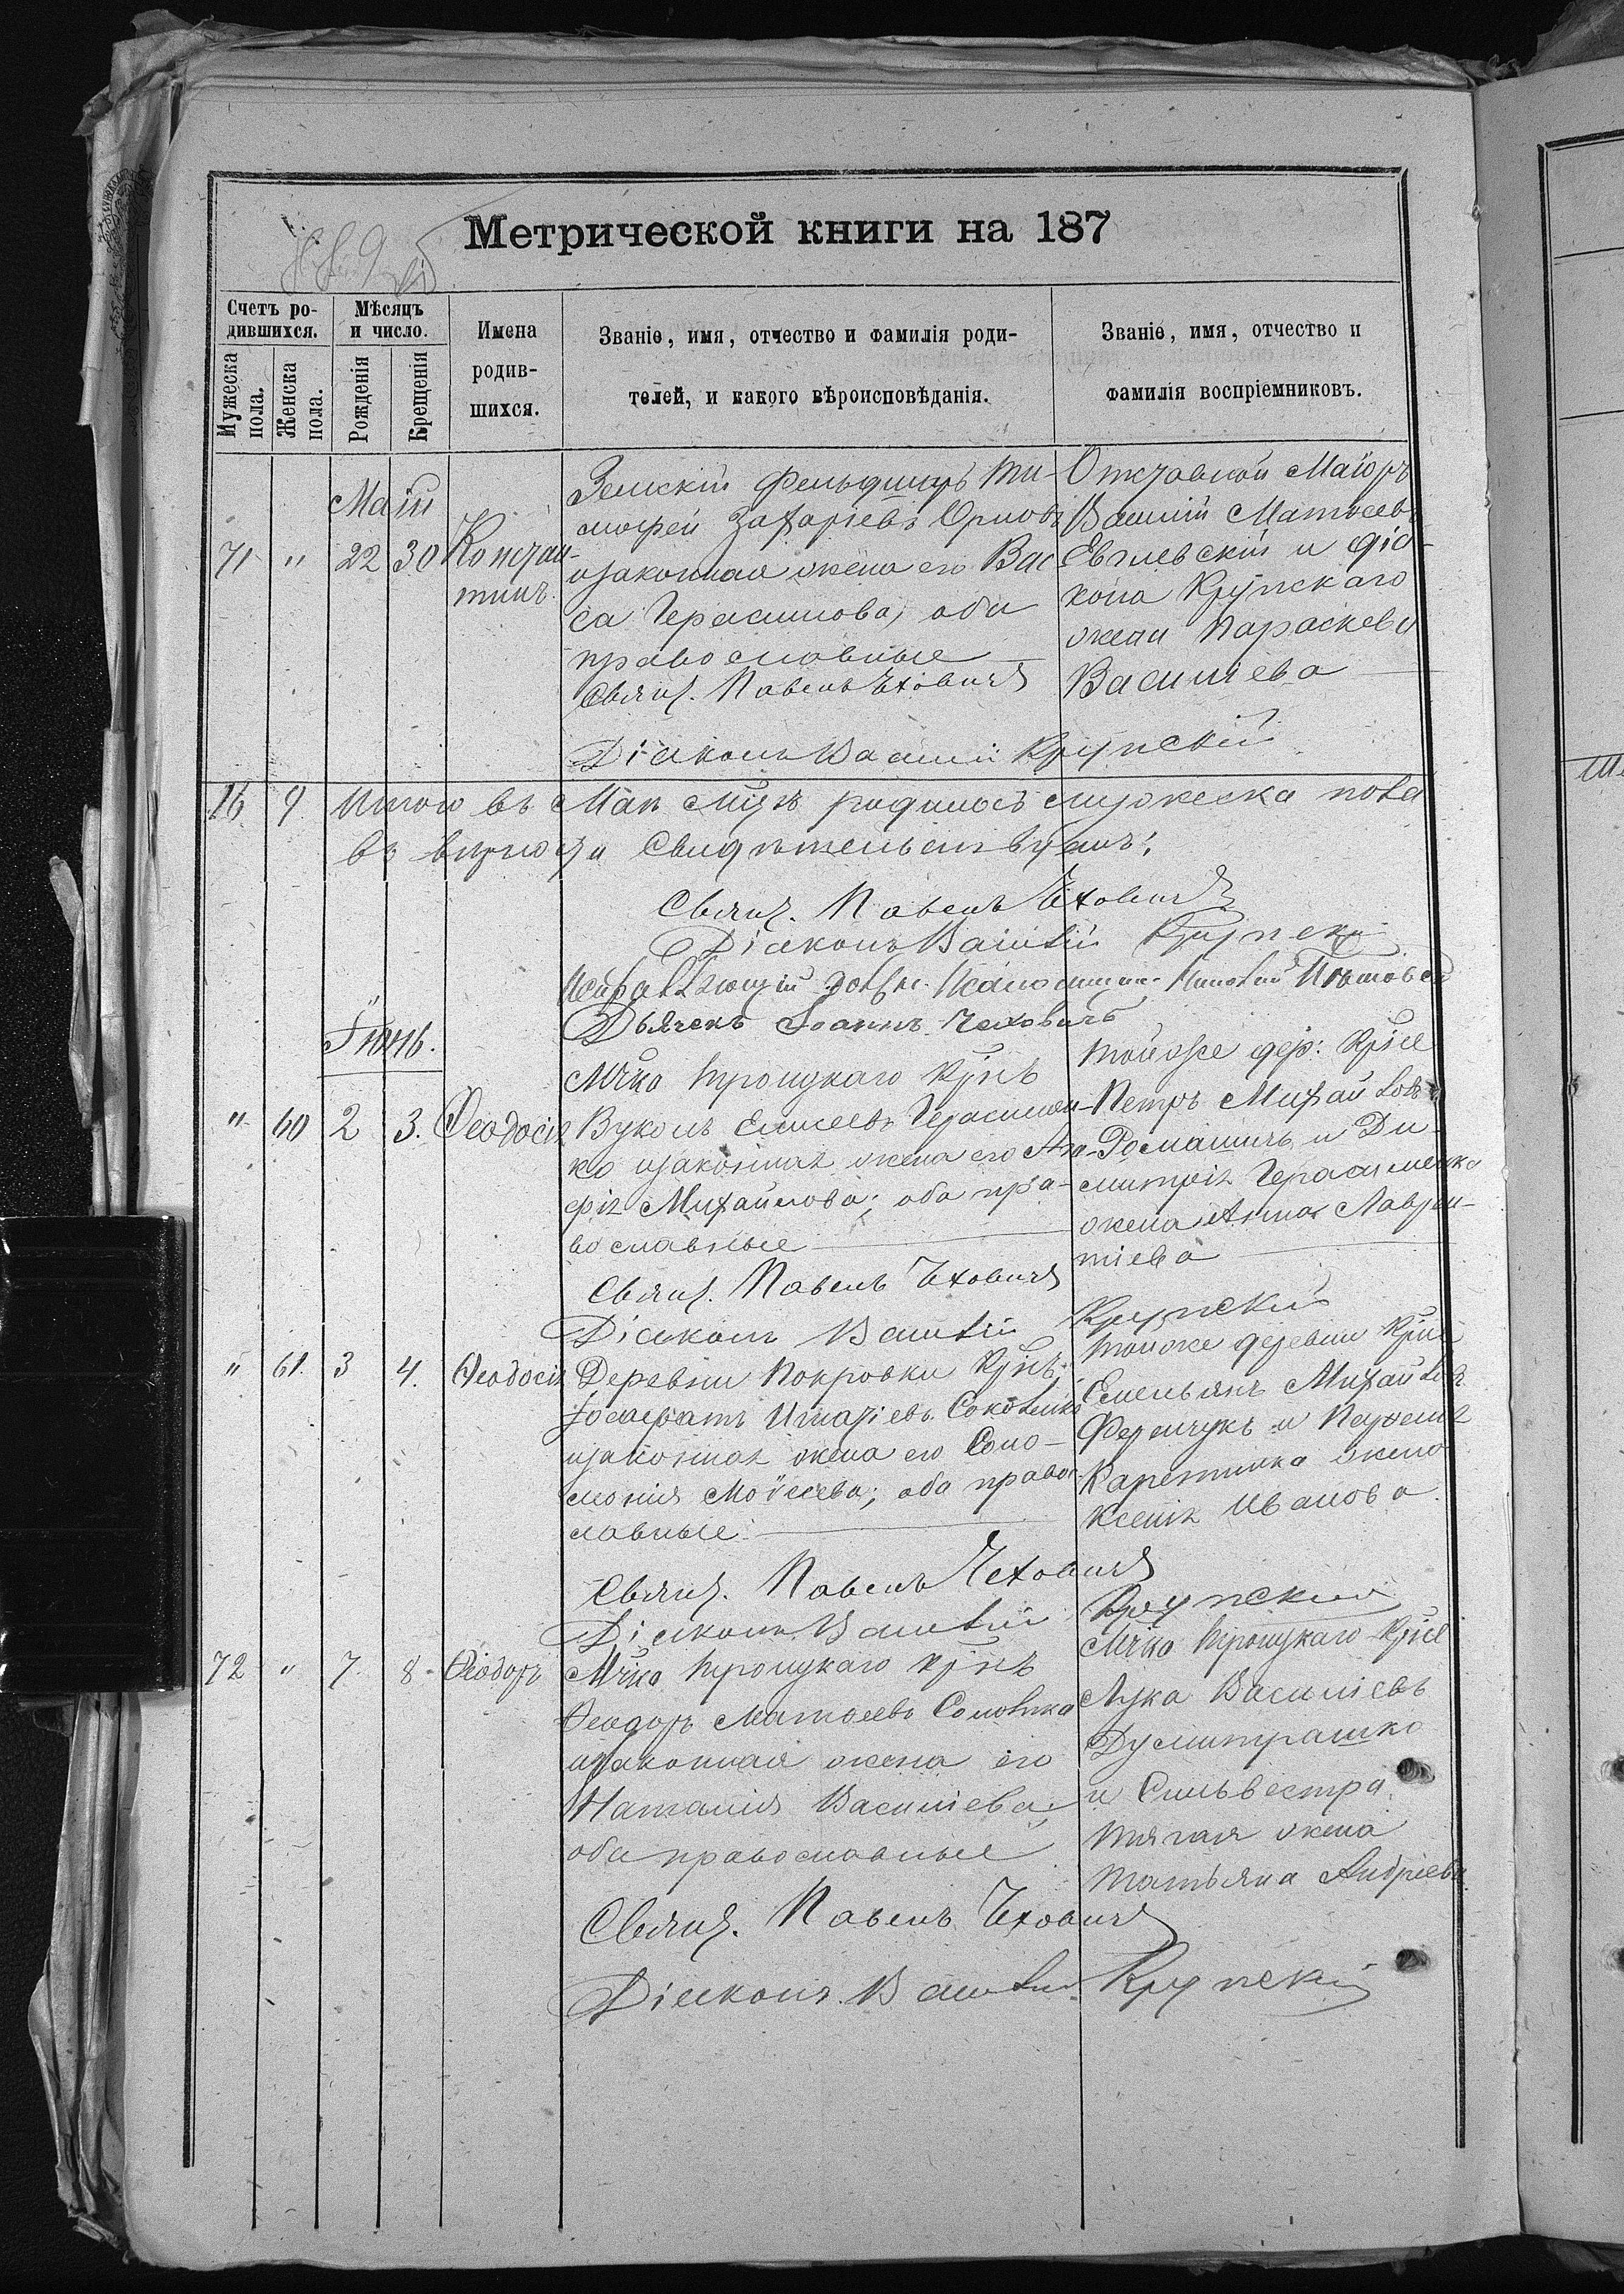 Метрической книги на 187
Счетъ ро-
дившихся.
Мужеска
пола.
Женска
пола.
Мѣсяцъ
и число.
Рожденія
Крещенія
Имена
родив-
шихся.
Званіе, имя, отчество и фамилія роди-
телей, и какого вѣроисповѣданія.
Званіе, имя, отчество и
фамилія воспріемниковъ.
Май
71 " 22 30
Констан-
тинъ
Земскій Фельдшеръ Ти-
мофей Захаріевъ Орловъ
изаконная жена его Вас
са Герасимова, оба
православные
Свящ. Павелъ Чеховичъ
Діаконъ Василій Крупскій
Отставной Маіоръ
Василій Матѳеевъ
и діа-
кона Крупскаго
жена Параскева
Василіева
16 9 Итого въ Маѣ мцѣ родилось мужеска пола
въ вѣрности свидѣтельствуемъ:
Свящ. Павелъ Чеховичъ
Діаконъ Василій Крупскій
Дьячекъ Іоаннъ Чеховичъ
Іюнь.
" 60 2 3. Ѳеодосія
Мѣчко Троицкаго крнъ
Вуколъ Елисеевъ Герасимен-
ко изаконная жена его Ага-
фія Михайлова; оба пра-
вославные
Свящ. Павелъ Чеховичъ
Діаконъ Василій Крупскій
Тойже дер: крне
Петръ Михайловъ
Ромашичъ и Ди-
митрія Герасименка
жена Анна Лаврен-
тіева
" 61. 3 4. Ѳеодосія
Деревни Покровки крнъ
Іосафатъ Игнатіевъ Соколенко
изаконная жена его Соло-
монія Моѵсеева; оба право-
славные
Свящ. Павелъ Чеховичъ
Діаконъ Василій Крупскій
Тойже деревни крне
Емельянъ Михайловъ
Ференчукъ и
Каретника жена
Ксенія Иванова
72 " 7. 8 Ѳеодоръ
Мѣчко Троицкаго крнъ
Ѳеодоръ Матѳеевъ Соловка
изаконная жена его
Наталія Василіева,
оба православные
Свящ. Павелъ Чеховичъ
Діаконъ Василій Крупскій
Мѣчко Троицкаго крне
Лука Василіевъ
Думитрашко
и Сильвестра
Тягая жена
Татьяна Андреева